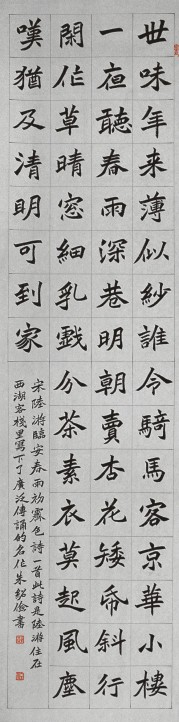 世味年来薄似紗誰令騎馬客京華小樓
一夜聽春雨深巷明朝賣杏花矮帋斜行
閑作草晴窓細乳戲分茶素衣莫起風塵
嘆猶及清明可到家
宋陸游臨安春雨初霽色詩一首此詩是陸游住在
西湖客棧里寫下了廣泛傳誦的名作朱紹儉書